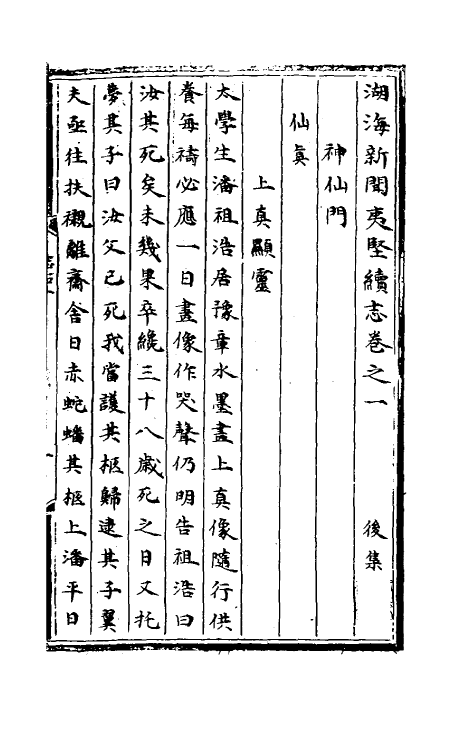 湖海新聞夷堅續志卷之一 後集
神仙門
仙眞
上真顯靈
太學生潘祖浩居豫章水墨畫上真像隨行供
養每禱必應一日畫像作哭聲仍明告祖浩曰
汝其死矣未幾果卒纔三十八歲死之日又托
夢其子曰汝父已死我當護其柩歸逮其子翼
夫亟往扶櫬離齋舍日赤蛇蟠其柩上潘平日